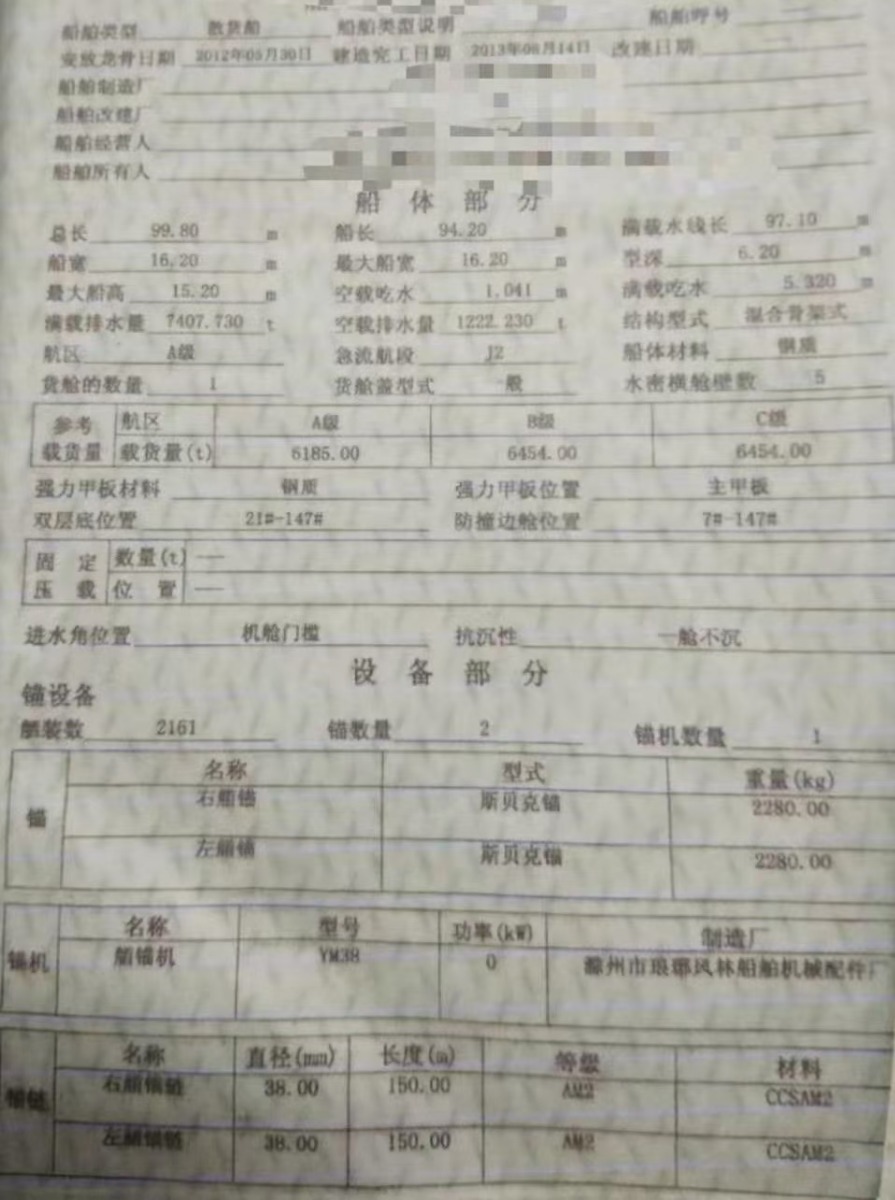 船舶类型 散货船 船舶类型说明 船舶呼号
安放龙骨日期 2012年05月30日 建造完工日期 2013年06月14日 改建日期
船舶制造厂
船舶改建厂
船舶经营人
船舶所有人
船体部分
总长 99.80 m 船长 94.20 m 满载水线长 97.10 m
船宽 16.20 m 最大船宽 16.20 m 型深 6.20 m
最大船高 15.20 m 空载吃水 1.041 m 满载吃水 5.320 m
满载排水量 7407.730 t 空载排水量 1222.230 t 结构型式 混合骨架式
航区 A级 急流航段 J2 船体材料 钢质
货舱的数量 1 货舱盖型式 一般 水密横舱壁数 5
参考载货量 航区 A级 B级 C级
载货量(t) 6185.00 6454.00 6454.00
强力甲板材料 钢质 强力甲板位置 主甲板
双层底位置 21#-147# 防撞边舱位置 7#-147#
固定压载 数量(t) ——
位置 ——
进水角位置 机舱门槛 抗沉性 一舱不沉
设备部分
锚设备
舾装数 2161 锚数量 2 锚机数量 1
锚 名称 型式 重量(kg)
右艏锚 斯贝克锚 2280.00
左艏锚 斯贝克锚 2280.00
锚机 名称 型号 功率(kW) 制造厂
艏锚机 YM38 0 滁州市琅琊风林船舶机械配件厂
锚链 名称 直径(mm) 长度(m) 等级 材料
右艏锚链 38.00 150.00 AM2 CCSAM2
左艏锚链 38.00 150.00 AM2 CCSAM2